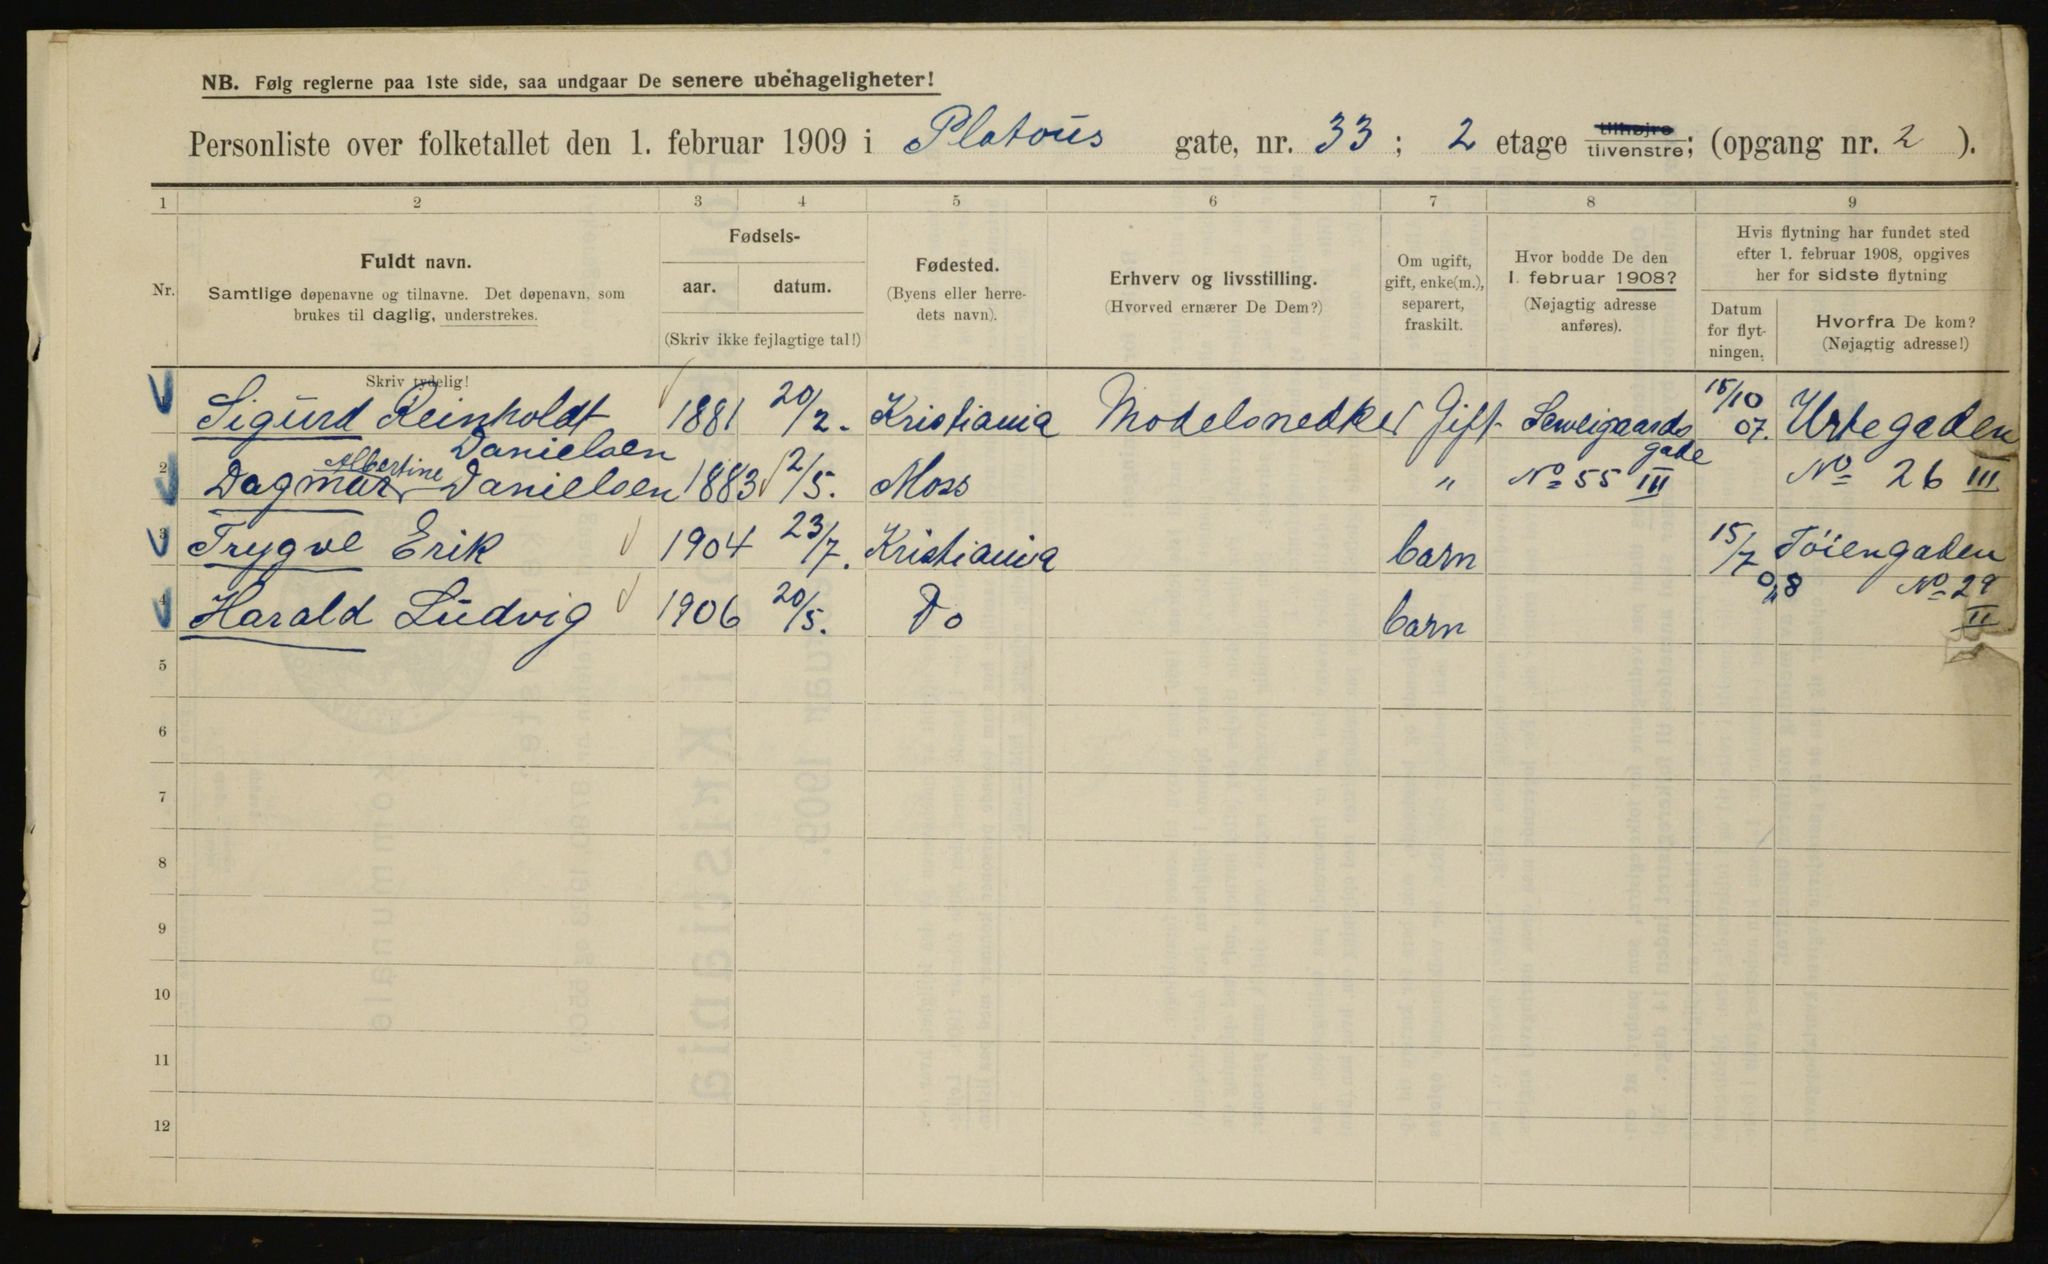 NB. Følg reglerne paa 1ste side, saa undgaar De senere ubehageligheter!
Personliste over folketallet den 1. februar 1909 i Platous gate, nr. 33 ; 2 etage tilhøjre tilvenstre; (opgang nr. 2 ).
1 2 3 4 5 6 7 8 9
Nr.
Fuldt navn.
Samtlige døpenavne og tilnavne. Det døpenavn, som
brukes til daglig, understrekes.
Skriv tydelig!
Fødsels-
aar. datum.
(Skriv ikke fejlagtige tal!)
Fødested.
(Byens eller herre-
dets navn).
Erhverv og livsstilling.
(Hvorved ernærer De Dem?)
Om ugift,
gift, enke(m.),
separert,
fraskilt.
Hvor bodde De den
1. februar 1908?
(Nøjagtig adresse
anføres).
Hvis flytning har fundet sted
efter 1. februar 1908, opgives
her for sidste flytning
Datum
for flyt-
ningen.
Hvorfra De kom?
(Nøjagtig adresse!)
Sigurd Reinholdt 1881 20/2. Kristiania Modelsnedker Gift Sweigaards 15/10 07. Urtegaden
Danielsen
2 Dagmar Albertine Danielsen 1883 2/5. Moss " gade No 55 III No 26 III
3 Trygve Erik 1904 23/7. Kristiania barn 15/7 08 Töiengaden
No 29
4 Harald Ludvig 1906 20/5. Do barn II
5
6
7
8
9
10
11
12